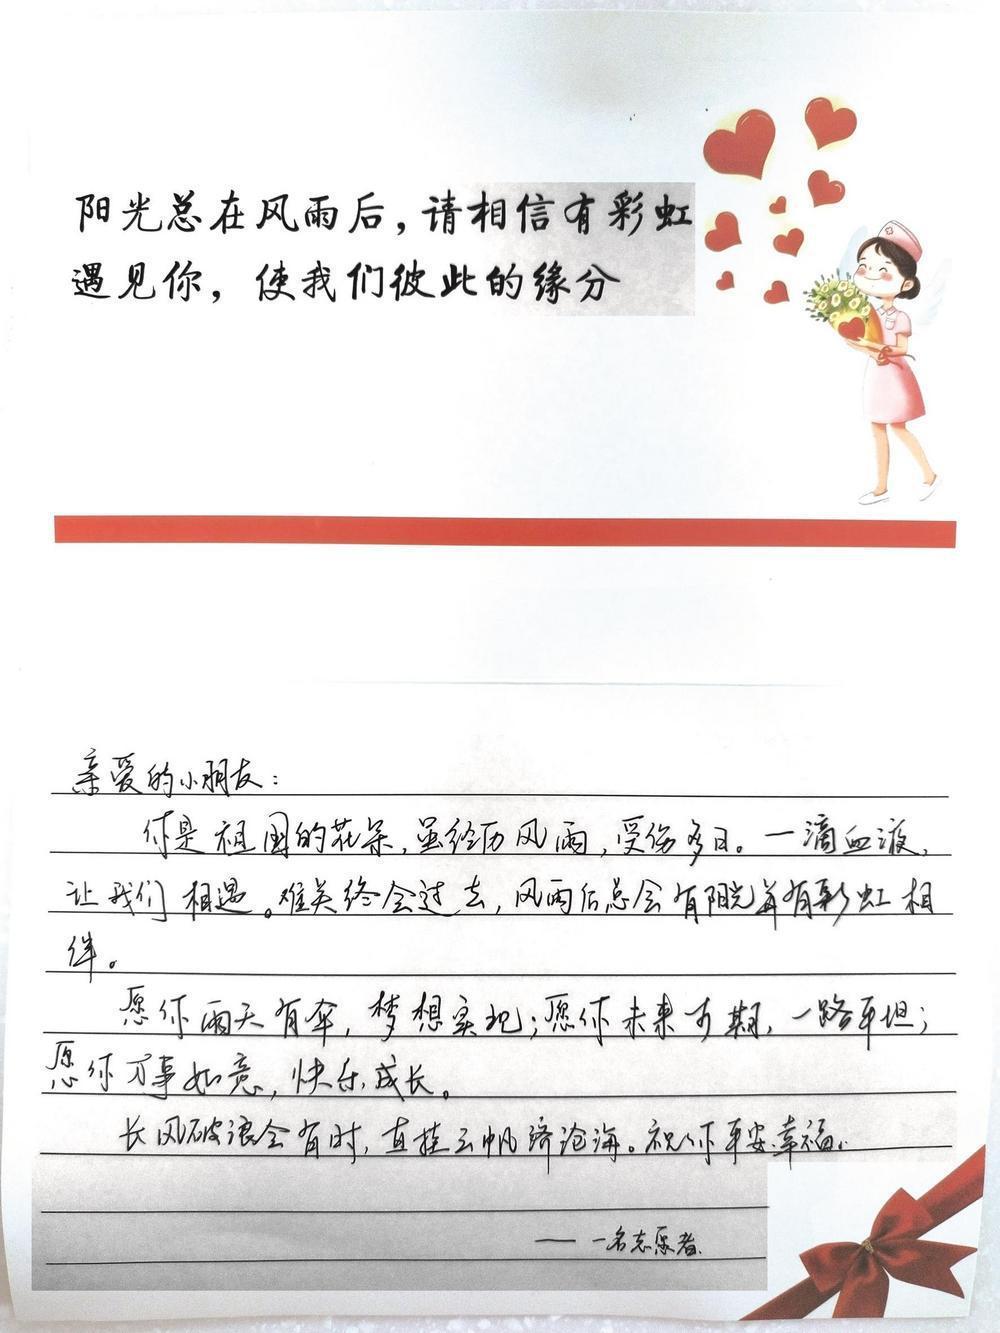 阳光总在风雨后，请相信有彩虹
遇见你，使我们彼此的缘分
亲爱的小朋友：
你是祖国的花朵，虽经历风雨，受伤多日。一滴血液，
让我们相遇。难关终会过去，风雨后总会有阳光并有彩虹相
伴。
愿你雨天有伞，梦想实现；愿你未来可期，一路平坦；
愿你万事如意，快乐成长。
长风破浪会有时，直挂云帆济沧海。祝你平安幸福。
—— 一名志愿者